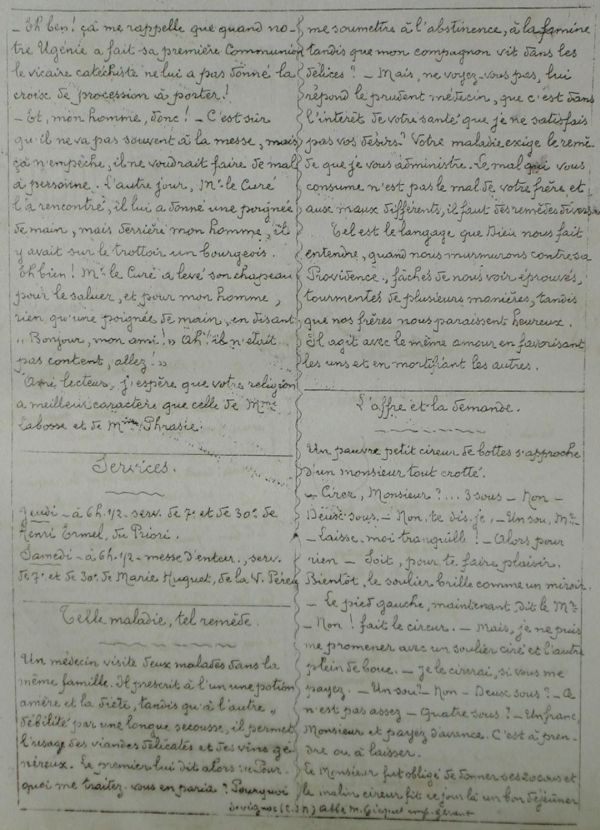 — Eh ben! ça me rappelle que quand no-
tre Ugénie a fait sa première Communion
le vicaire catéchiste ne lui a pas donné la
croix de procession à porter!
— Et, mon homme, donc! — C'est sûr
qu'il ne va pas souvent à la messe, mais
çà n'empêche, il ne voudrait faire de mal
à personne. L'autre jour, Mr le Curé
l'a rencontré, il lui a donné une poignée
de main, mais derrière mon homme, il
y avait sur le trottoir un bourgeois.
Eh bien! Mr le Curé a levé son chapeau
pour le saluer, et pour mon homme,
rien qu'une poignée de main, en disant
"Bonjour, mon ami!" Ah! il n'était
pas content, allez!"
Ami lecteur, j'espère que votre religion
a meilleur caractère que celle de Mme
Labosse et de Mme Phrasie.
Services.
Jeudi — à 6h. 1/2. serv. de 7e et de 30e de
Henri Ermel, du Priori.
Samedi — à 6h. 1/2 — messe d'enter., serv.
de 7e et de 30e de Marie Huguet, de la V. Pérée
Telle maladie, tel remède.
Un médecin visite deux malades dans la
même famille. Il prescrit à l'un une potion
amère et la diète, tandis qu'à l'autre,
débilité par une longue secousse, il permet
l'usage des viandes délicates et des vins gé-
néreux. Le premier lui dit alors: "Pour-
quoi me traitez-vous en paria? Pourquoi
me soumettre à l'abstinence, à la famine
tandis que mon compagnon vit dans les
délices? — Mais, ne voyez-vous pas, lui
répond le prudent médecin, que c'est dans
l'intérêt de votre santé que je ne satisfais
pas vos désirs? Votre maladie exige le remè-
de que je vous administre. Le mal qui vous
consume n'est pas le mal de votre frère et
aux maux différents, il faut des remèdes divers.
Tel est le langage que Dieu nous fait
entendre, quand nous murmurons contre sa
Providence, fâchés de nous voir éprouvés,
tourmentés de plusieurs manières, tandis
que nos frères nous paraissent heureux.
Il agit avec le même amour en favorisant
les uns et en mortifiant les autres.
L'offre et la demande.
Un pauvre petit cireur de bottes s'approche
d'un monsieur tout crotté.
— Cirer, Monsieur?... 3 sous — Non —
Deux sous. — Non, te dis-je, — Un sou, Mr
— Laisse-moi tranquille! — Alors pour
rien — Soit, pour te faire plaisir.
Bientôt, le soulier brille comme un miroir.
— Le pied gauche, maintenant, dit le Mr
— Non! fait le cireur. — Mais, je ne puis
me promener avec un soulier ciré et l'autre
plein de boue. — Je le cirerai, si vous me
payez. — Un sou? — Non — Deux sous? — Ce
n'est pas assez — Quatre sous? — Un franc,
Monsieur et payez d'avance. C'est à pren-
dre ou à laisser.
Le Monsieur fut obligé de donner ses 20 sous et
le malin cireur fit ce jour là un bon déjeuner
Sévignac (C.d.N) Abbé M. Gicquel imp. gérant